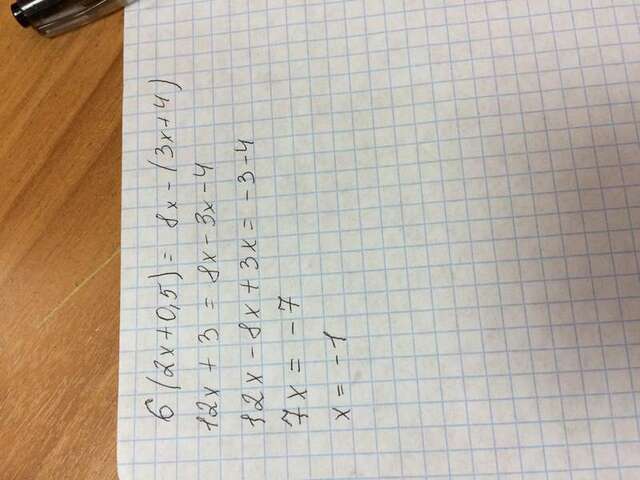 6(2x+0,5)= 8x-(3x+4)
12x + 3 = 8x-3x-4
12x -8x+3x= -3-4
7x = -7
x = -1